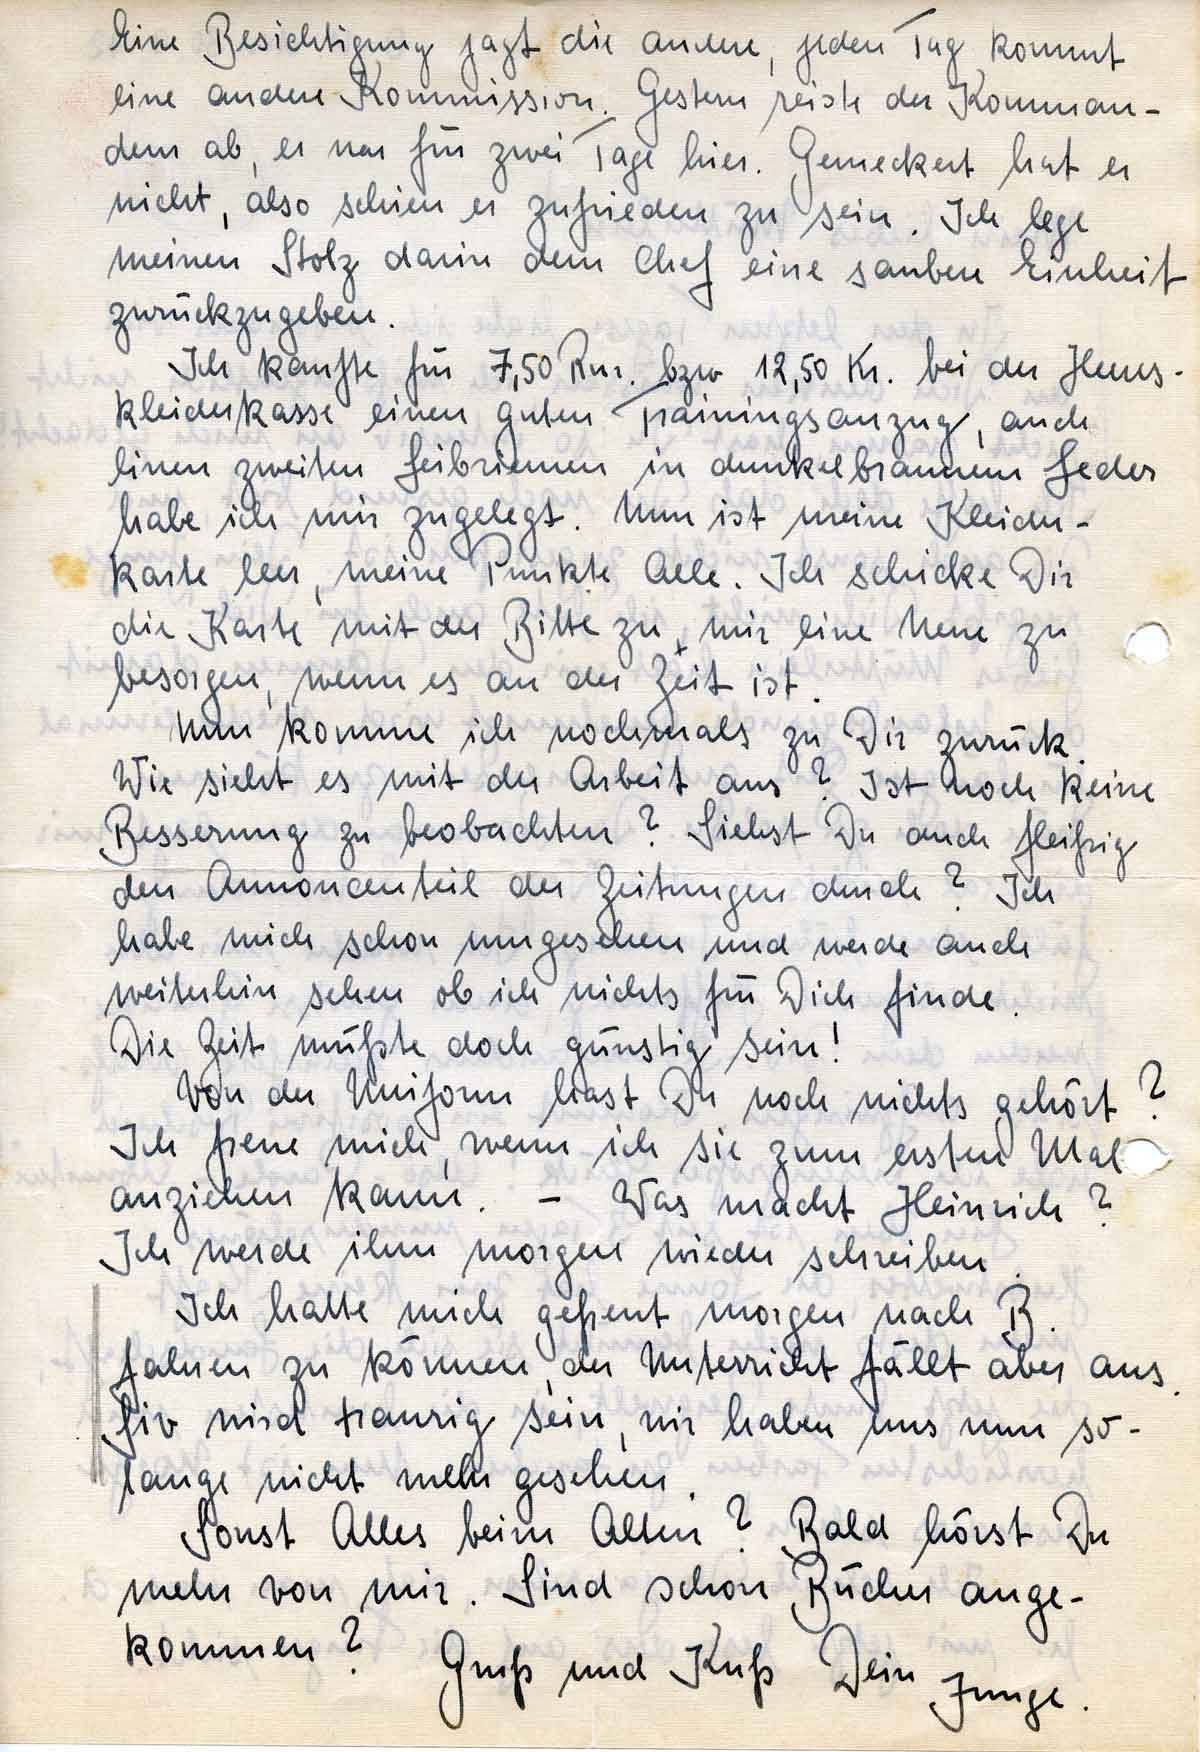 Eine Besichtigung jagt die andere, jeden Tag kommt
eine andere Kommission. Gestern reiste der Komman-
deur ab, er war für zwei Tage hier. Gemeckert hat er
nicht, also schien er zufrieden zu sein. Ich lege
meinen Stolz darin dem Chef eine saubere Einheit
zurückzugeben.
Ich kaufte für 7,50 Rm. bzw 12,50 Kr. bei der Heeres-
kleiderkasse einen guten Trainingsanzug, auch
einen zweiten Leibriemen in dunkelbraunem Leder
habe ich mir zugelegt. Nun ist meine Kleider-
karte leer, meine Punkte Alle. Ich schicke Dir
die Karte mit der Bitte zu, mir eine Neue zu
besorgen, wenn es an der Zeit ist.
Nun komme ich nochmals zu Dir zurück.
Wie sieht es mit der Arbeit aus? Ist noch keine
Besserung zu beobachten? Siehst Du auch fleißig
den Annoncenteil der Zeitungen durch? Ich
habe mich schon umgesehen und werde auch
weiterhin sehen ob ich nichts für Dich finde.
Die Zeit müßte doch günstig sein!
Von der Uniform hast Du noch nichts gehört?
Ich freue mich, wenn ich sie zum ersten Mal
anziehen kann. – Was macht Heinrich?
Ich werde ihm morgen wieder schreiben.
Ich hatte mich gefreut morgen nach B.
fahren zu können, der Unterricht fällt aber aus.
Siv wird traurig sein, wir haben uns nun so-
lange nicht mehr gesehen.
Sonst Alles beim Alten? Bald hörst Du
mehr von mir. Sind schon Bücher ange-
kommen?
Gruß und Kuß Dein Junge.